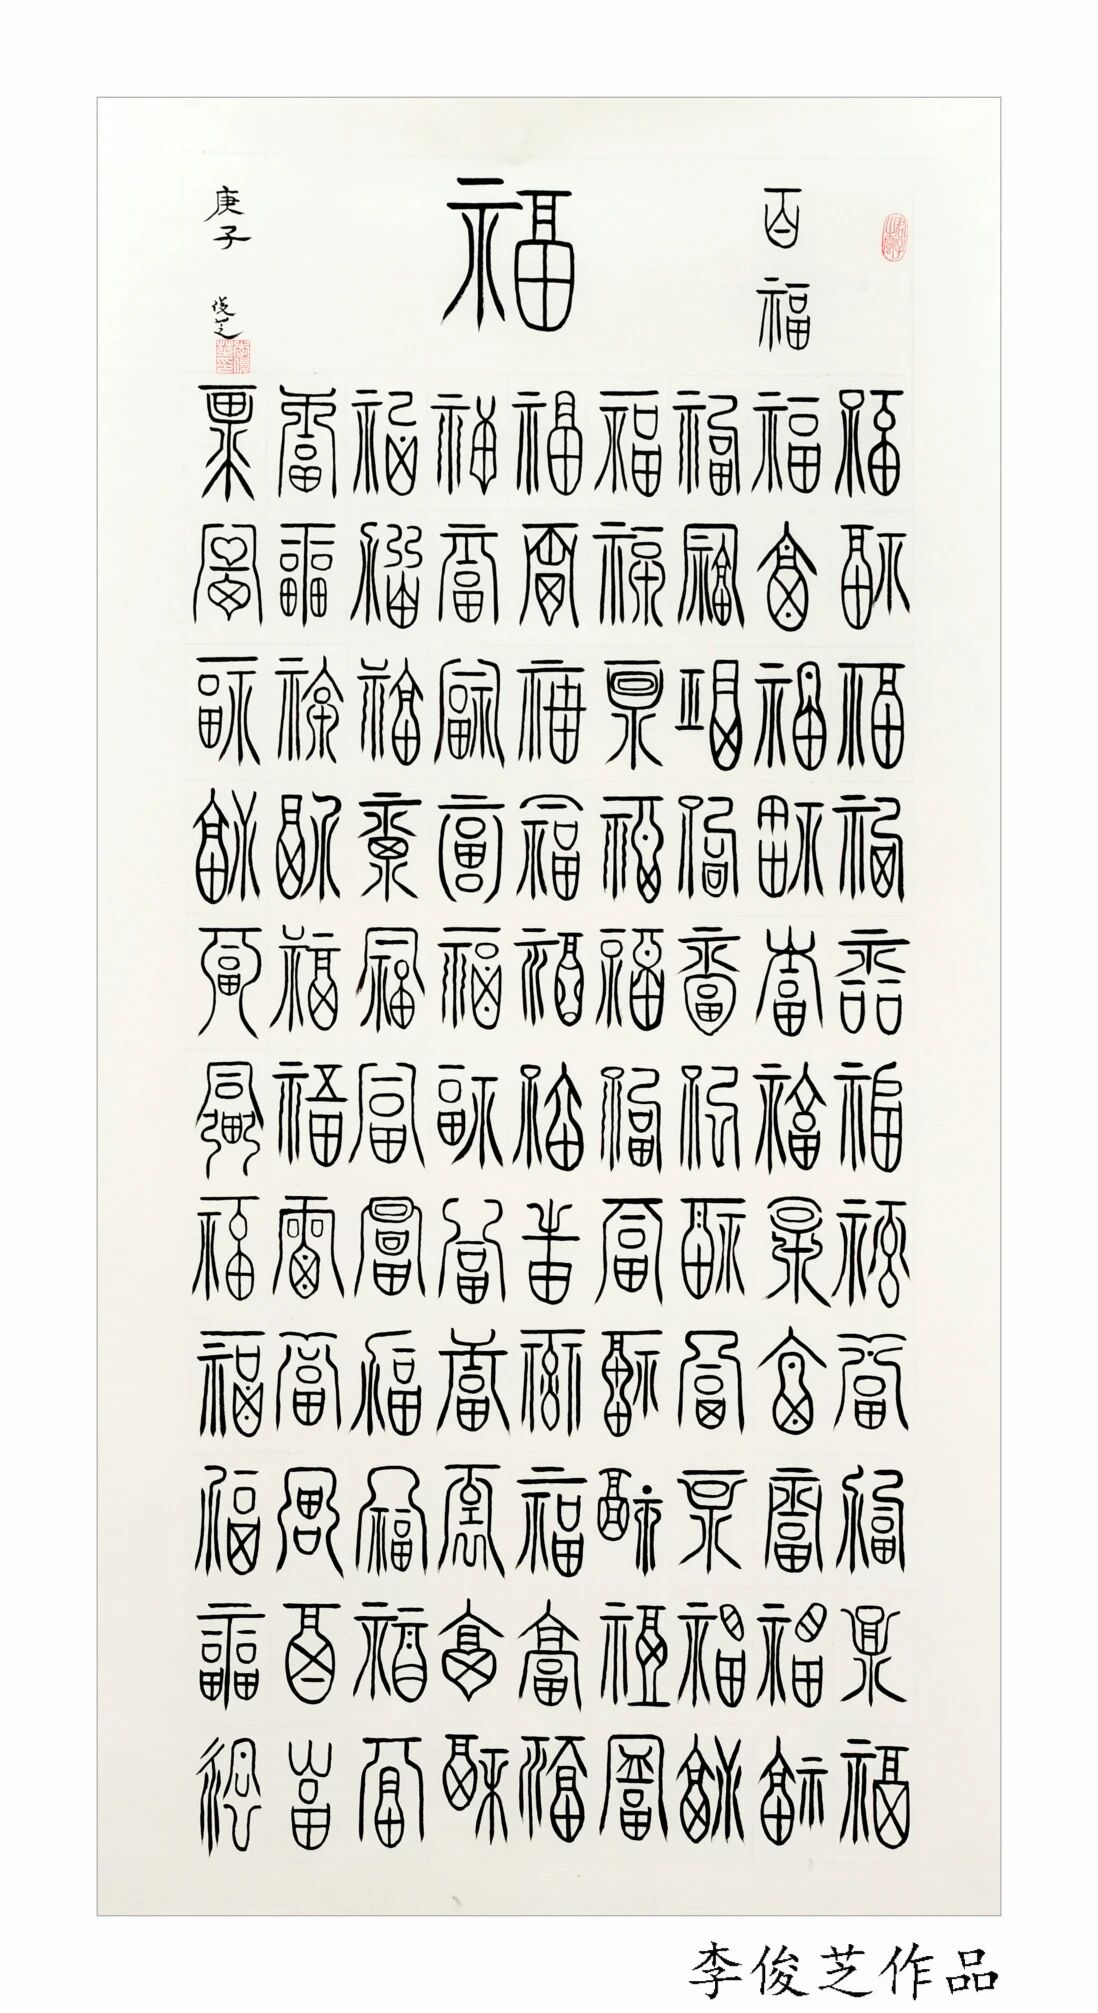 百福
福
庚子
俊芝
福福福福福福福福福
福福福福福福福福福
福福福福福福福福福
福福福福福福福福福
福福福福福福福福福
福福福福福福福福福
福福福福福福福福福
福福福福福福福福福
福福福福福福福福福
福福福福福福福福福
福福福福福福福福福
李俊芝作品